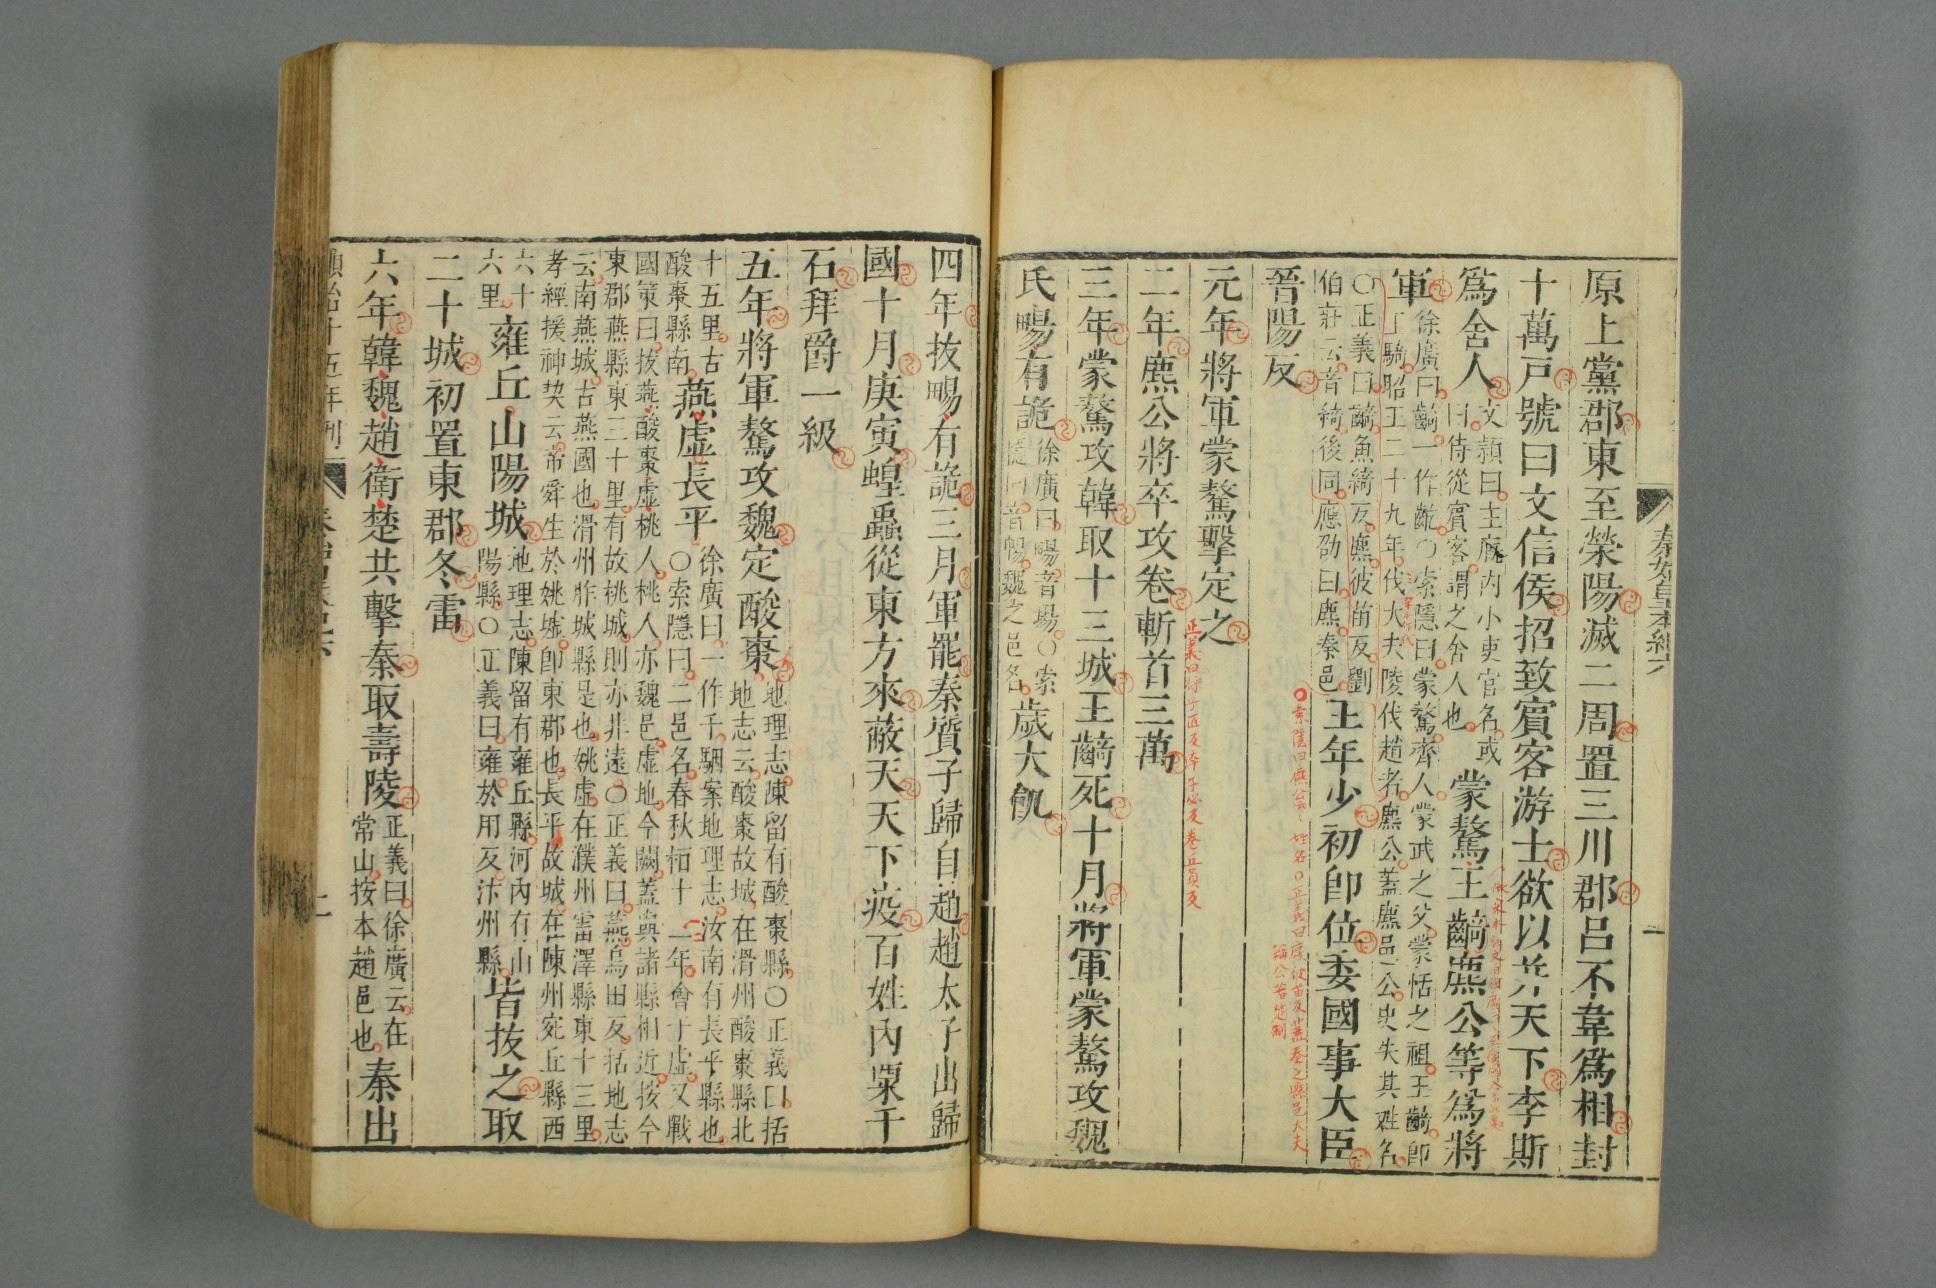 原上黨郡東至滎陽滅二周置三川郡呂不韋爲相封
十萬戸號曰文信侯招致賓客游士欲以并天下李斯
爲舍人
文頴曰主廐內小吏官名或
曰侍從賓客謂之舍人也
蒙驁王齮麃公等爲將
軍
徐廣曰齮一作齕○索隱曰蒙驁齊人蒙武之父蒙恬之祖王齮卽
王騎昭王二十九年伐大夫陵伐趙者麃公蓋麃邑公史失其姓名
○正義曰齮魚綺反麃彼苗反劉
伯莊云音綺後同應劭曰麃秦邑
王年少初卽位委國事大臣
晉陽反
元年將軍蒙驁擊定之
二年麃公將卒攻卷斬首三萬
正義曰將子匠反卒子必反卷丘員反
三年蒙驁攻韓取十三城王齮死十月將軍蒙驁攻魏
氏畼有詭
徐廣曰畼音場○索
隱曰音暢魏之邑名
歲大飢
秦始皇本紀六
四年拔畼有詭三月軍罷秦質子歸自趙趙太子出歸
國十月庚寅蝗蟲從東方來蔽天天下疫百姓內粟千
石拜爵一級
五年將軍驁攻魏定酸棗
地理志陳留有酸棗縣○正義曰括
地志云酸棗故城在滑州酸棗縣北
十五里古
酸棗縣南
燕虛長平
徐廣曰一作千駰案地理志汝南有長平縣也
○索隱曰二邑名春秋桓十二年會于虛又戰
國策曰拔燕酸棗虛桃人桃人亦魏邑虛地今闕蓋與諸縣相近按今
東郡燕縣東三十里有故桃城則亦非遠○正義曰燕烏田反括地志
云南燕城古燕國也滑州胙城縣是也姚虛在濮州雷澤縣東十三里
孝經援神契云帝舜生於姚墟卽東郡也長平故城在陳州宛丘縣西
六十
六里
雍丘山陽城
地理志陳留有雍丘縣河內有山
陽縣○正義曰雍於用反汴州縣
皆拔之取
二十城初置東郡冬雷
六年韓魏趙衛楚共擊秦取壽陵
正義曰徐廣云在
常山按本趙邑也
秦出